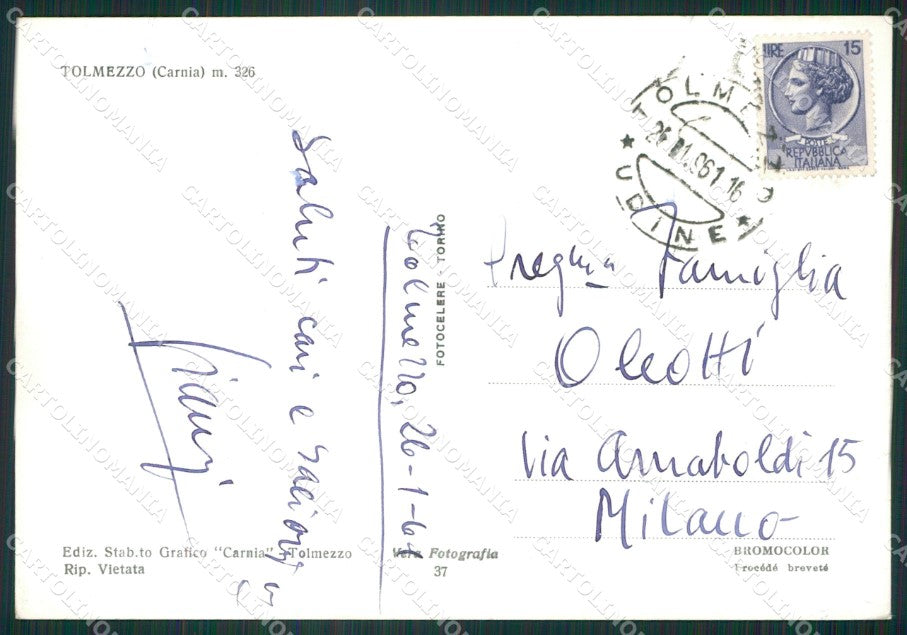 TOLMEZZO (Carnia) m. 326
LIRE 15
POSTE
REPVBBLICA
ITALIANA
TOLMEZZO
26.01.961.16
★ UDINE ★
Saluti cari e
Tolmezzo, 26-1-61
FOTOCELERE - TORINO
Famiglia
Via Arnaboldi 15
Milano
Ediz. Stab.to Grafico "Carnia" - Tolmezzo
Rip. Vietata
Vera Fotografia
37
BROMOCOLOR
Procédé breveté
CARTOLINOMANIA